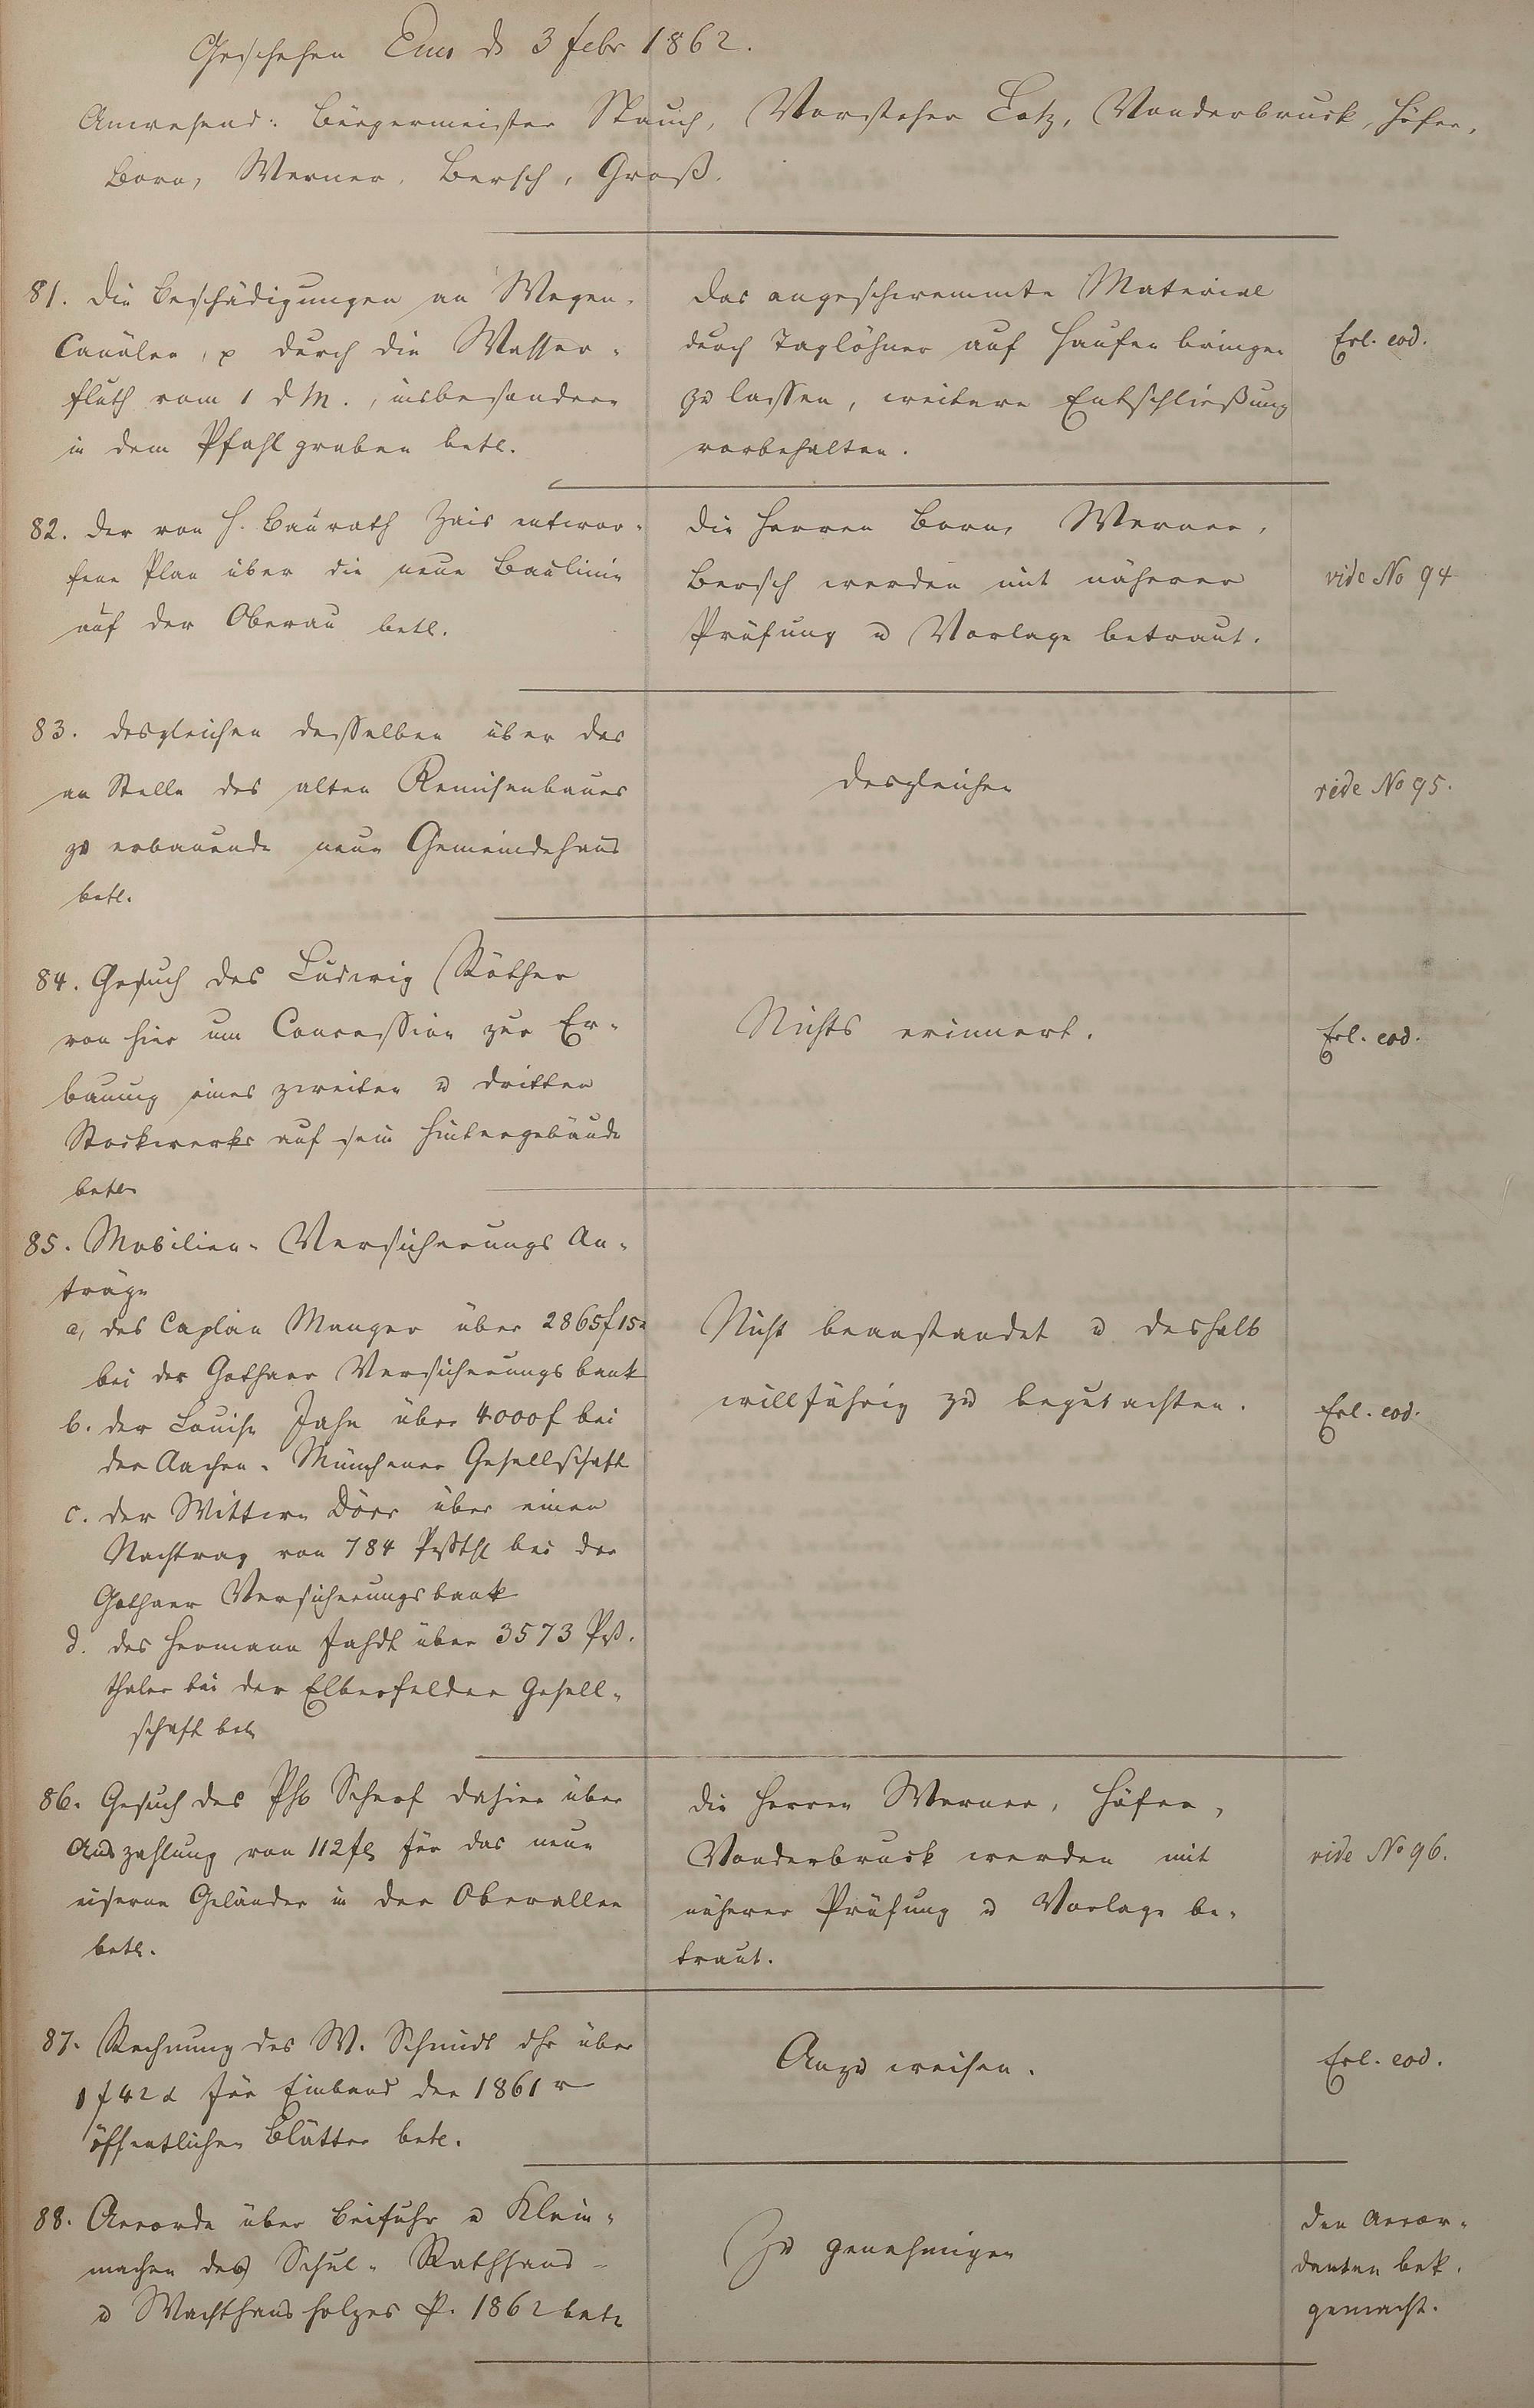 Geschehen Ems d 3 febr 1862.
Anwesend: Bürgermeister Spauch, Vorsteher Lotz, Vonderbruck, Höfer,
Born, Werner, Bersch, Groß.
81. Die Beschädigungen an Wegen,
Canälen, p durch die Wasser-
fluth vom 1 d M., insbesondere
in dem Pfahlgraben betr.
Das angeschwemmte Material
durch Taglöhner auf Haufen bringen
zu lassen, weitere Entschließung
vorbehalten.
Erl. eod.
82. Der von H. Baurath Zais entwor-
fene Plan über die neue Baulinie
auf der Oberau betr.
Die Herren Born, Werner,
Bersch werden mit näherer
Prüfung u Vorlage betraut.
vide No 94
83. Desgleichen desselben über das
an Stelle des alten Remisenbaues
zu erbauende neue Gemeindehaus
betr.
Desgleichen
vide No 95.
84. Gesuch des Ludwig Köther
von hier um Concession zur Er-
bauung eines zweiten u dritten
Stockwerks auf sein Hintergebäude
betr
Nichts erinnert.
Erl. eod.
85. Mobilien-Versicherungs An-
träge
a, des Caplan Manger über 2865f 15x
bei der Gothaer Versicherungsbank
b. der Louise Jahn über 4000f bei
der Aachen-Münchener Gesellschaft
c. der Wittwe Dörr über einen
Nachtrag von 784 Prßthl bei der
Gothaer Versicherungsbank
d. des Hermann Jahdt über 3573 Prß.
thaler bei der Elberfelder Gesell-
schaft betr
Nicht beanstandet u deshalb
willfährig zu begutachten.
Erl. eod.
86. Gesuch des Ph Scherf dahier über
Auszahlung von 112 fl für das neue
eiserne Geländer in der Oberallee
betr.
Die Herren Werner, Höfer,
Vonderbruck werden mit
näherer Prüfung u Vorlage be-
traut.
vide No 96.
87. Rechnung des W. Schmidt dhr über
1 f 42 x für Einband der 1861r
öffentlichen Blätter betr.
Anzuweisen.
Erl. eod.
88. Accorde über Beifuhr u Klein-
machen des Schul- Rathhaus-
u Wachthausholzes p. 1862 betr
Zu genehmigen
Den Accor-
danten bek.
gemacht.